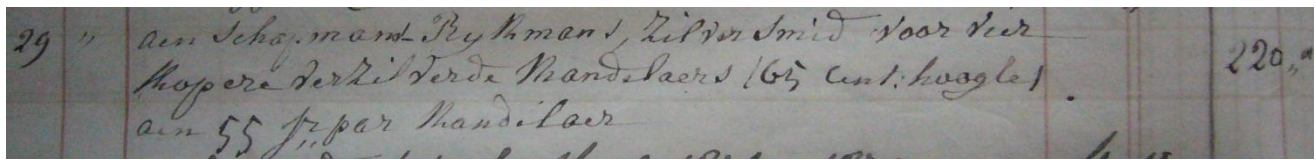 29 " aen Schapmans Rykmans, Zilver Smid voor vier
Kopere verzilverde Kandelaers (65 Cent: hoogte) 220 "
aen 55 fr par Kandelaer